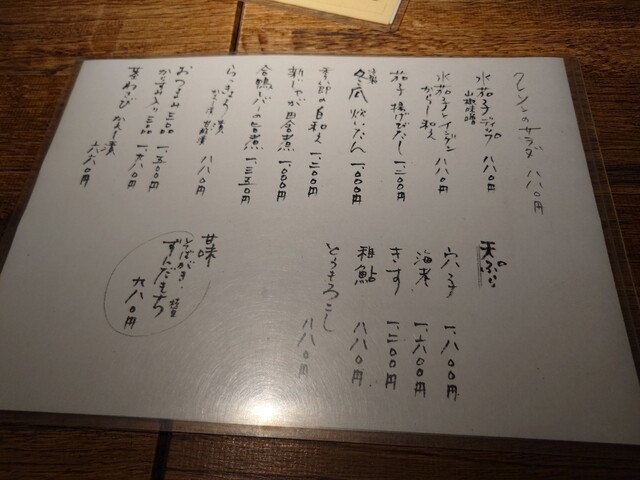 クレソンのサラダ 八八〇円
水茄子ディップ 八八〇円
山椒味噌
水茄子とイチジク
からし和え 八八〇円
茄子 揚げだし 一、二〇〇円
冬瓜 炊いたん 一、〇〇〇円
季節の白和え 一、二〇〇円
新じゃが田舎煮 一、〇〇〇円
合鴨レバーの旨煮 一、三五〇円
らっきょう漬
八八〇円
おつまみ三品
からすみ入り三品 一、五〇〇円
茎わさび かえし漬
六六〇円
天ぷら
穴子 一、八〇〇円
海老 一、六〇〇円
きす 一、二〇〇円
稚鮎 八八〇円
とうもろこし
八八〇円
甘味
そばがき
ずんだもち
九八〇円